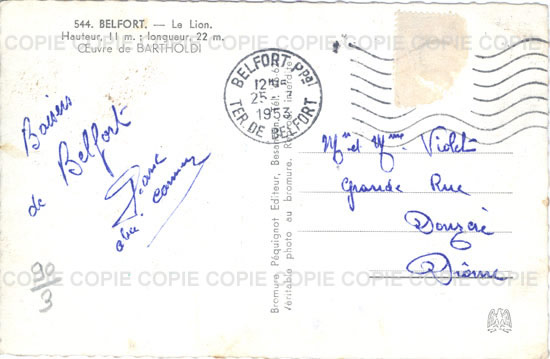 544. BELFORT. — Le Lion.
Hauteur, 11 m. ; longueur, 22 m.
Œuvre de BARTHOLDI
COPIE COPIE COPIE COPIE COPIE COPIE COPIE COPIE
BELFORT Ppal
25
1953
TER. DE BELFORT
Baisers
de Belfort
Mr et Mme Violet
Grande Rue
Donzère
Drôme
Bromure Péquignot Editeur, Besançon
Véritable photo au bromure. interdite
COPIE COPIE COPIE COPIE COPIE COPIE COPIE COPIE
30/3